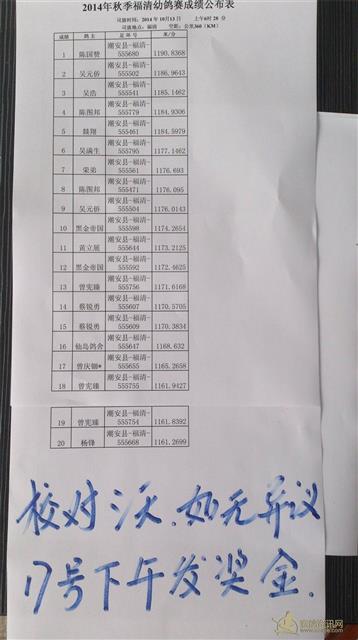 2014年秋季福清幼鸽赛成绩公布表
司放时间：2014年10月13日 上午6时28分
司放地点：福清 空距：公里360（KM）
成绩 鸽主 足环号 分速
1 陈国赞 潮安县-福清-555680 1190.8368
2 吴元侨 潮安县-福清-555502 1186.9643
3 吴浩 潮安县-福清-555541 1185.1462
4 陈图邦 潮安县-福清-555779 1184.9306
5 鼓翔 潮安县-福清-555461 1184.5979
6 吴满生 潮安县-福清-555795 1177.1462
7 荣弟 潮安县-福清-555561 1176.693
8 陈图邦 潮安县-福清-555471 1176.095
9 吴元侨 潮安县-福清-555504 1176.0143
10 黑金帝国 潮安县-福清-555598 1174.2654
11 黄立展 潮安县-福清-555644 1173.2125
12 黑金帝国 潮安县-福清-555592 1172.4625
13 曾宪臻 潮安县-福清-555756 1171.6168
14 蔡锐勇 潮安县-福清-555607 1170.5705
15 蔡锐勇 潮安县-福清-555609 1170.3834
16 仙岛鸽舍 潮安县-福清-555647 1168.632
17 曾庆钿* 潮安县-福清-555655 1165.2658
18 曾宪臻 潮安县-福清-555755 1161.9427
19 曾宪臻 潮安县-福清-555754 1161.8392
20 杨锋 潮安县-福清-555668 1161.2699
校对沃.如无异议
17号下午发奖金.